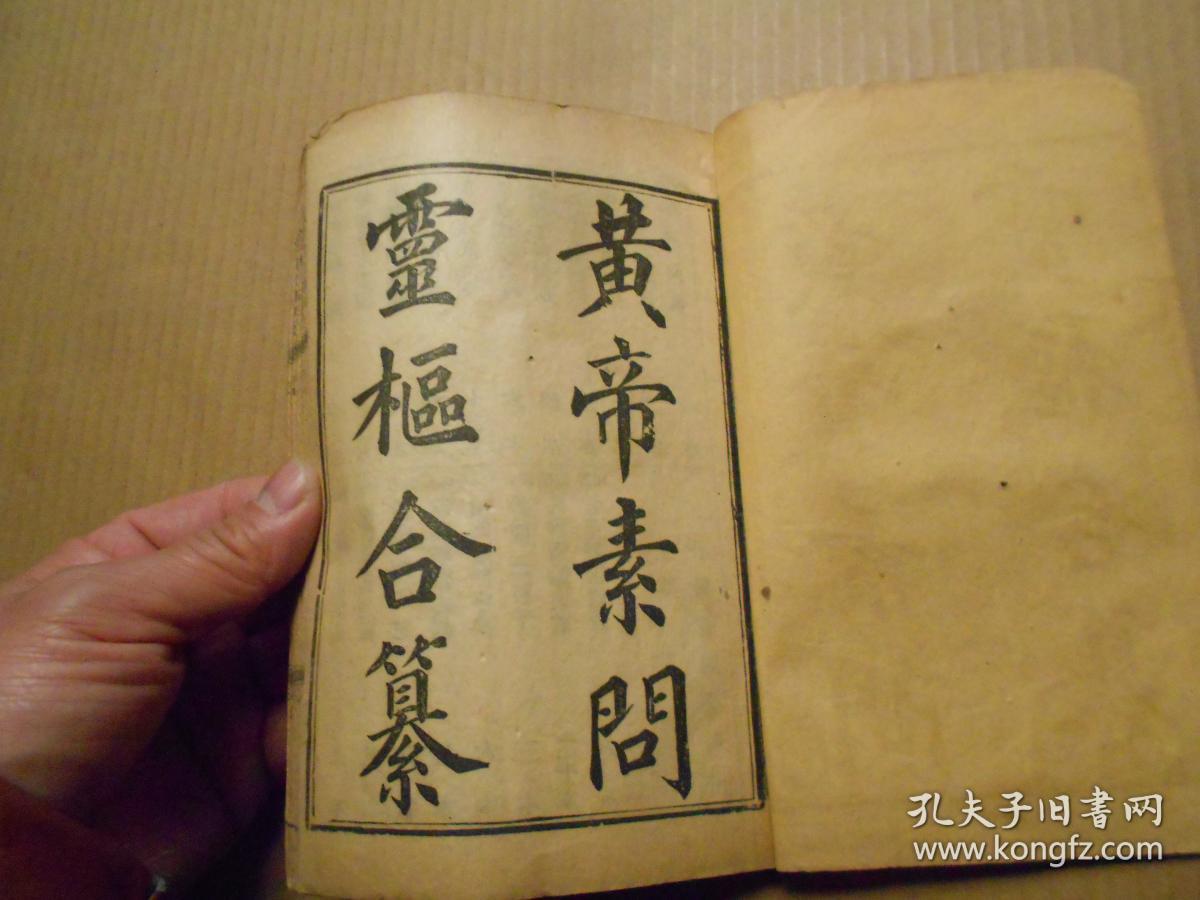 黄帝素問
靈樞合纂
孔夫子旧書网
www.kongfz.com